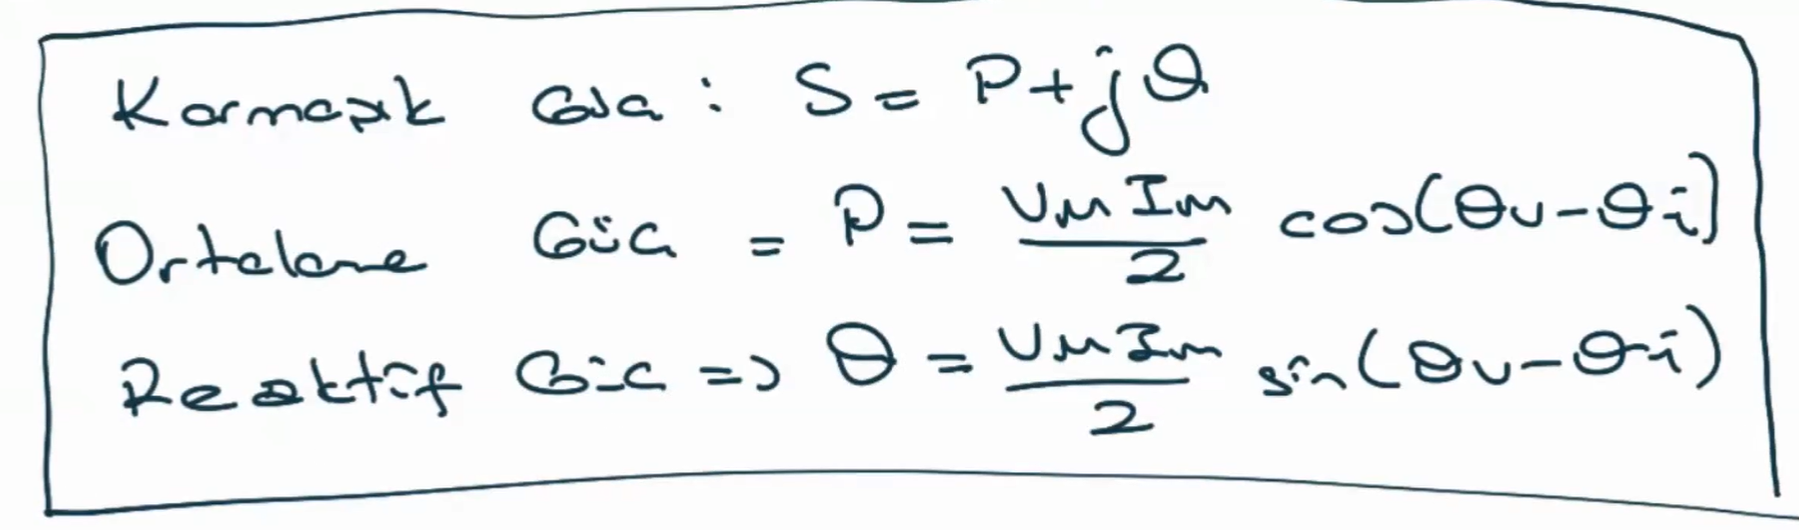 Karmaşık Güç : S = P + jQ
Ortalama Güç = P = VmIm/2 cos(θv - θi)
Reaktif Güç => Q = VmIm/2 sin(θv - θi)